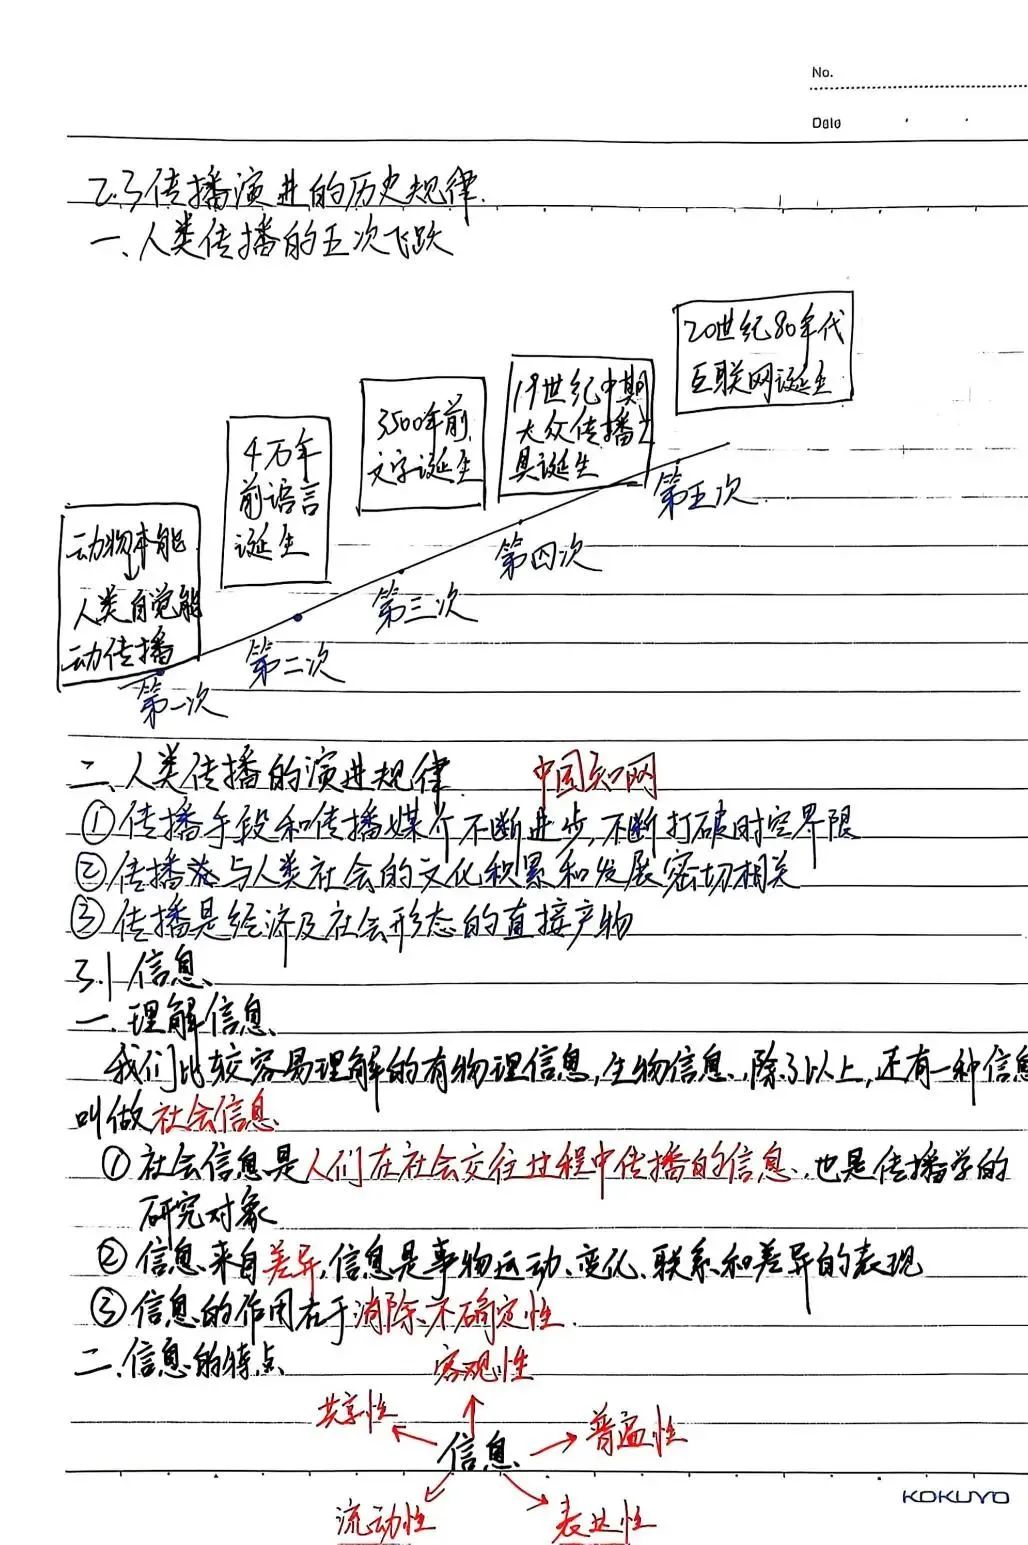 No.
Date
2.3传播演进的历史规律.
一、人类传播的五次飞跃
20世纪80年代
互联网诞生
19世纪中期
大众传播工
具诞生
3500年前
文字诞生
4万年
前语言
诞生
动物本能
人类自觉能
动传播
第五次
第四次
第三次
第二次
第一次
二、人类传播的演进规律 中国知网
①传播手段和传播媒介不断进步,不断打破时空界限
②传播与人类社会的文化积累和发展密切相关
③传播是经济及社会形态的直接产物
3.1信息
一.理解信息
我们比较容易理解的有物理信息,生物信息.除了以上,还有一种信息
叫做社会信息
①社会信息是人们在社会交往过程中传播的信息,也是传播学的
研究对象
②信息来自差异,信息是事物运动、变化、联系和差异的表现
③信息的作用在于消除不确定性.
二.信息的特点
客观性
共享性
普遍性
信息
流动性
表达性
KOKUYO